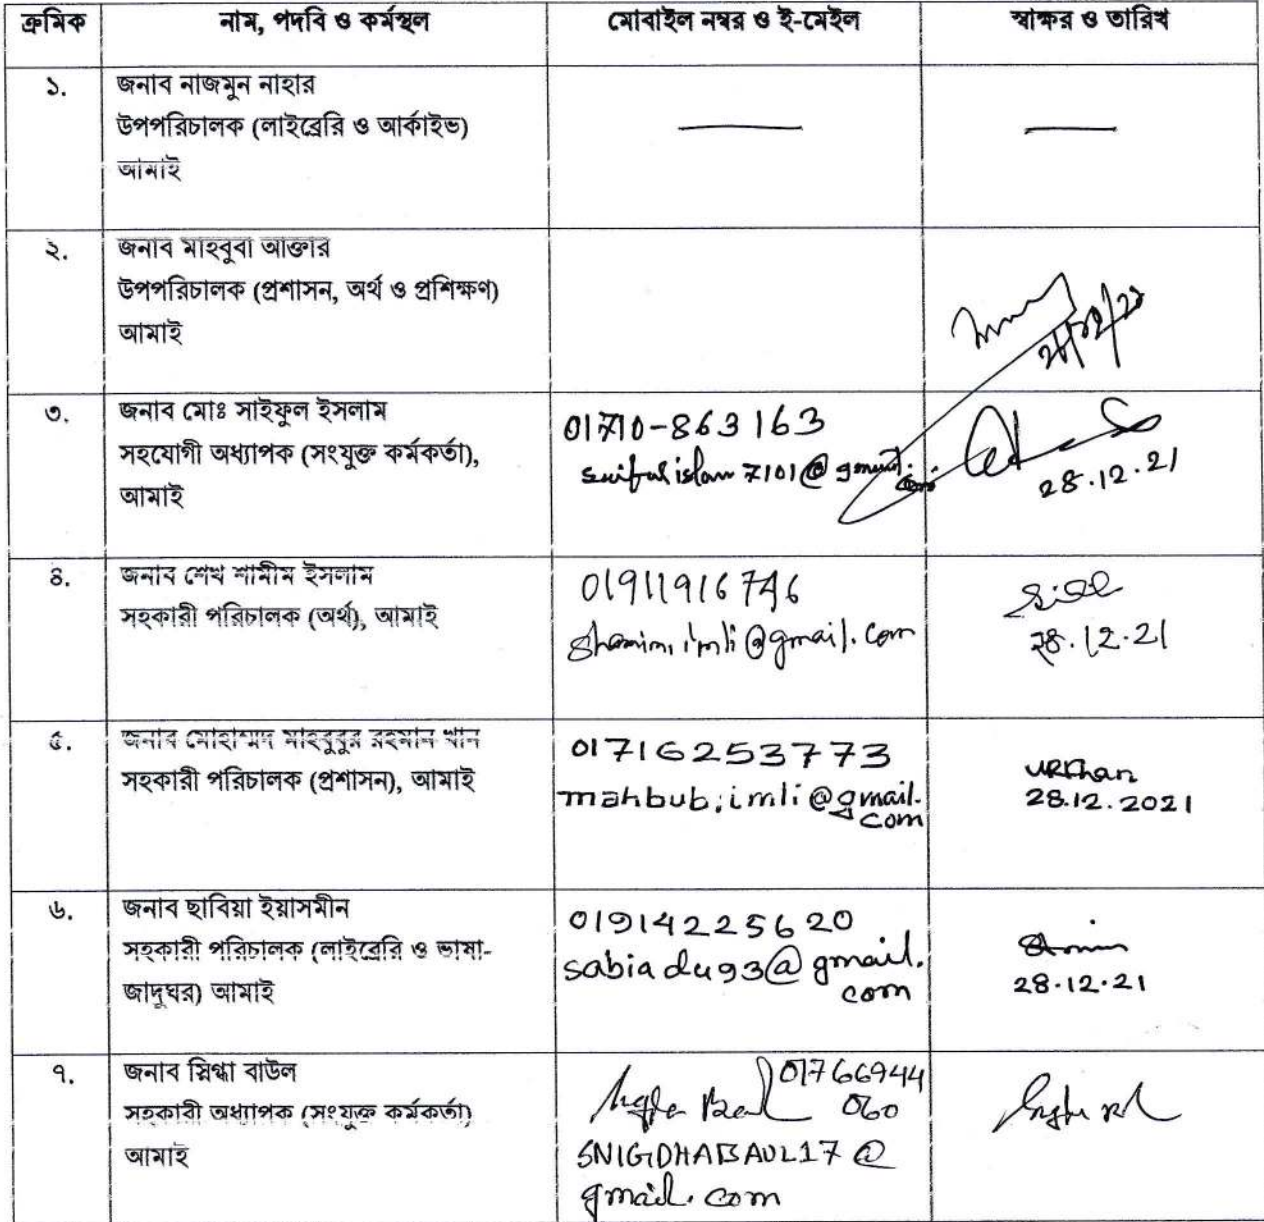 ক্রমিক নাম, পদবি ও কর্মস্থল মোবাইল নম্বর ও ই-মেইল স্বাক্ষর ও তারিখ
১. জনাব নাজমুন নাহার
উপপরিচালক (লাইব্রেরি ও আর্কাইভ)
আমাই
২. জনাব মাহবুবা আক্তার
উপপরিচালক (প্রশাসন, অর্থ ও প্রশিক্ষণ)
আমাই
৩. জনাব মোঃ সাইফুল ইসলাম
সহযোগী অধ্যাপক (সংযুক্ত কর্মকর্তা),
আমাই
01710-863163
saifulislam7101@gmail.
com
28.12.21
৪. জনাব শেখ শামীম ইসলাম
সহকারী পরিচালক (অর্থ), আমাই
01911916746
shamim.imli@gmail.com
28.12.21
৫. জনাব মোহাম্মদ মাহবুবুর রহমান খান
সহকারী পরিচালক (প্রশাসন), আমাই
01716253773
mahbub.imli@gmail.
com
28.12.2021
৬. জনাব ছাবিয়া ইয়াসমীন
সহকারী পরিচালক (লাইব্রেরি ও ভাষা-
জাদুঘর) আমাই
01914225620
sabiadu93@gmail.
com
28.12.21
৭. জনাব স্নিগ্ধা বাউল
সহকারী অধ্যাপক (সংযুক্ত কর্মকর্তা)
আমাই
01766944
060
SNIGDHABAUL17@
gmail.com